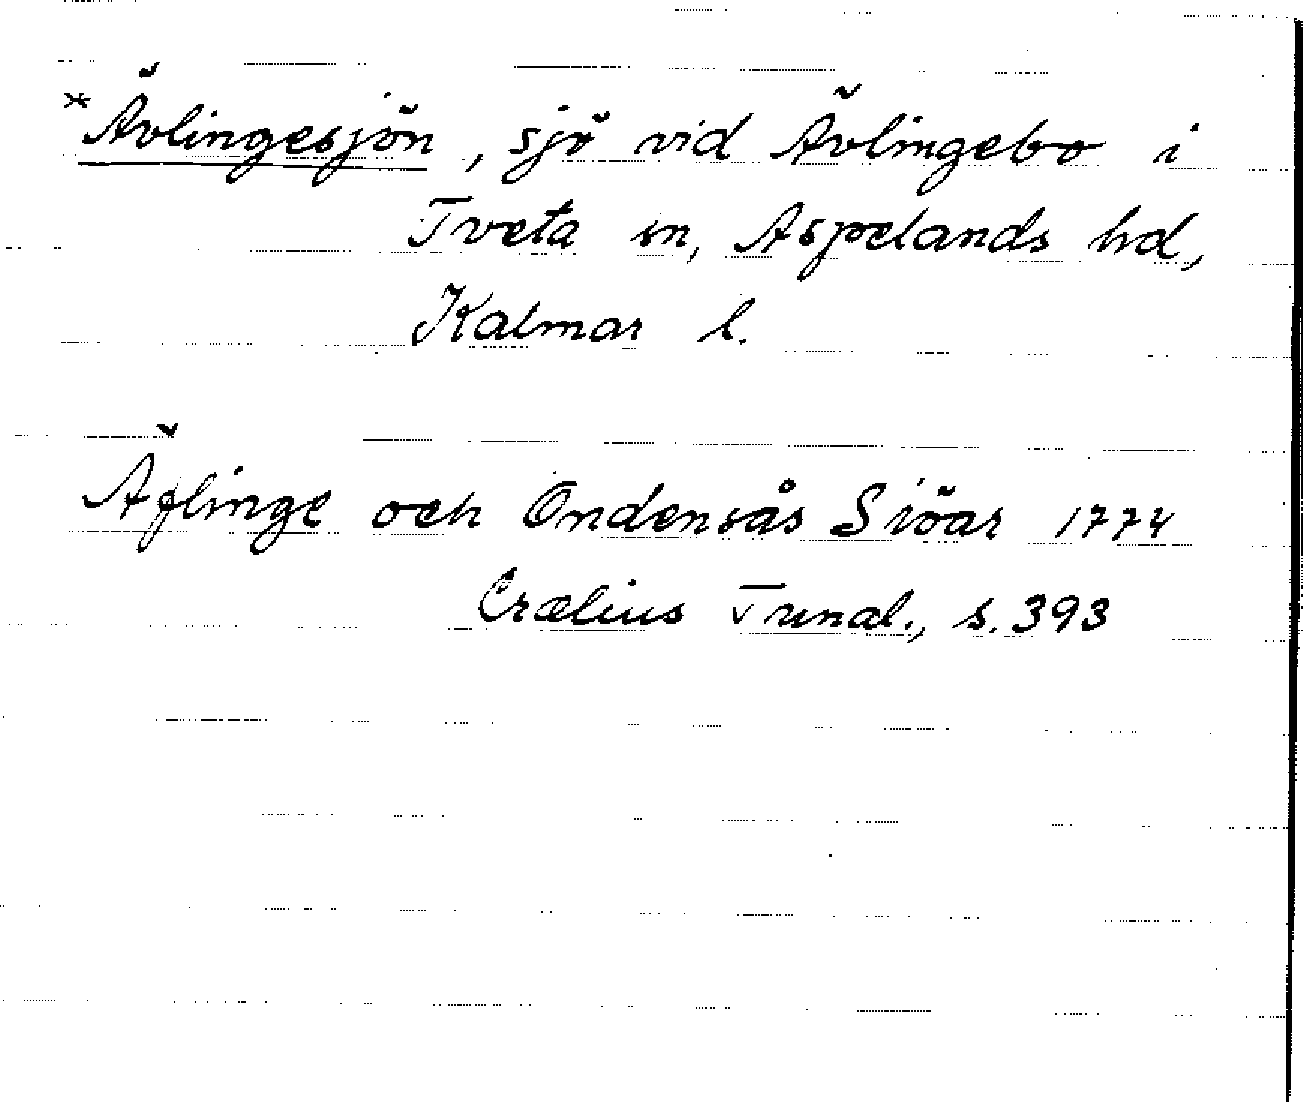 *Ävlingesjön, sjö vid Ävlingebo i
Tveta sn, Aspelands hd,
Kalmar l.
Äflinge och Öndensås Siöar 1774
Crælius Tunal., s. 393